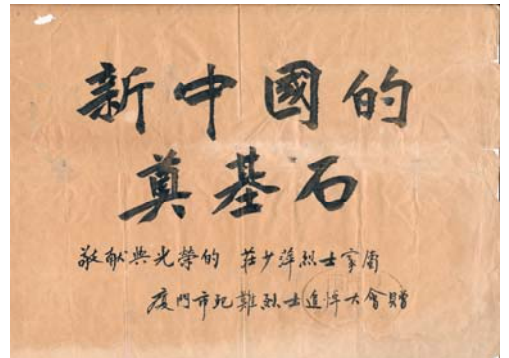 新中國的
奠基石
敬献與光榮的 莊少萍烈士家屬
廈門市死難烈士追悼大會贈